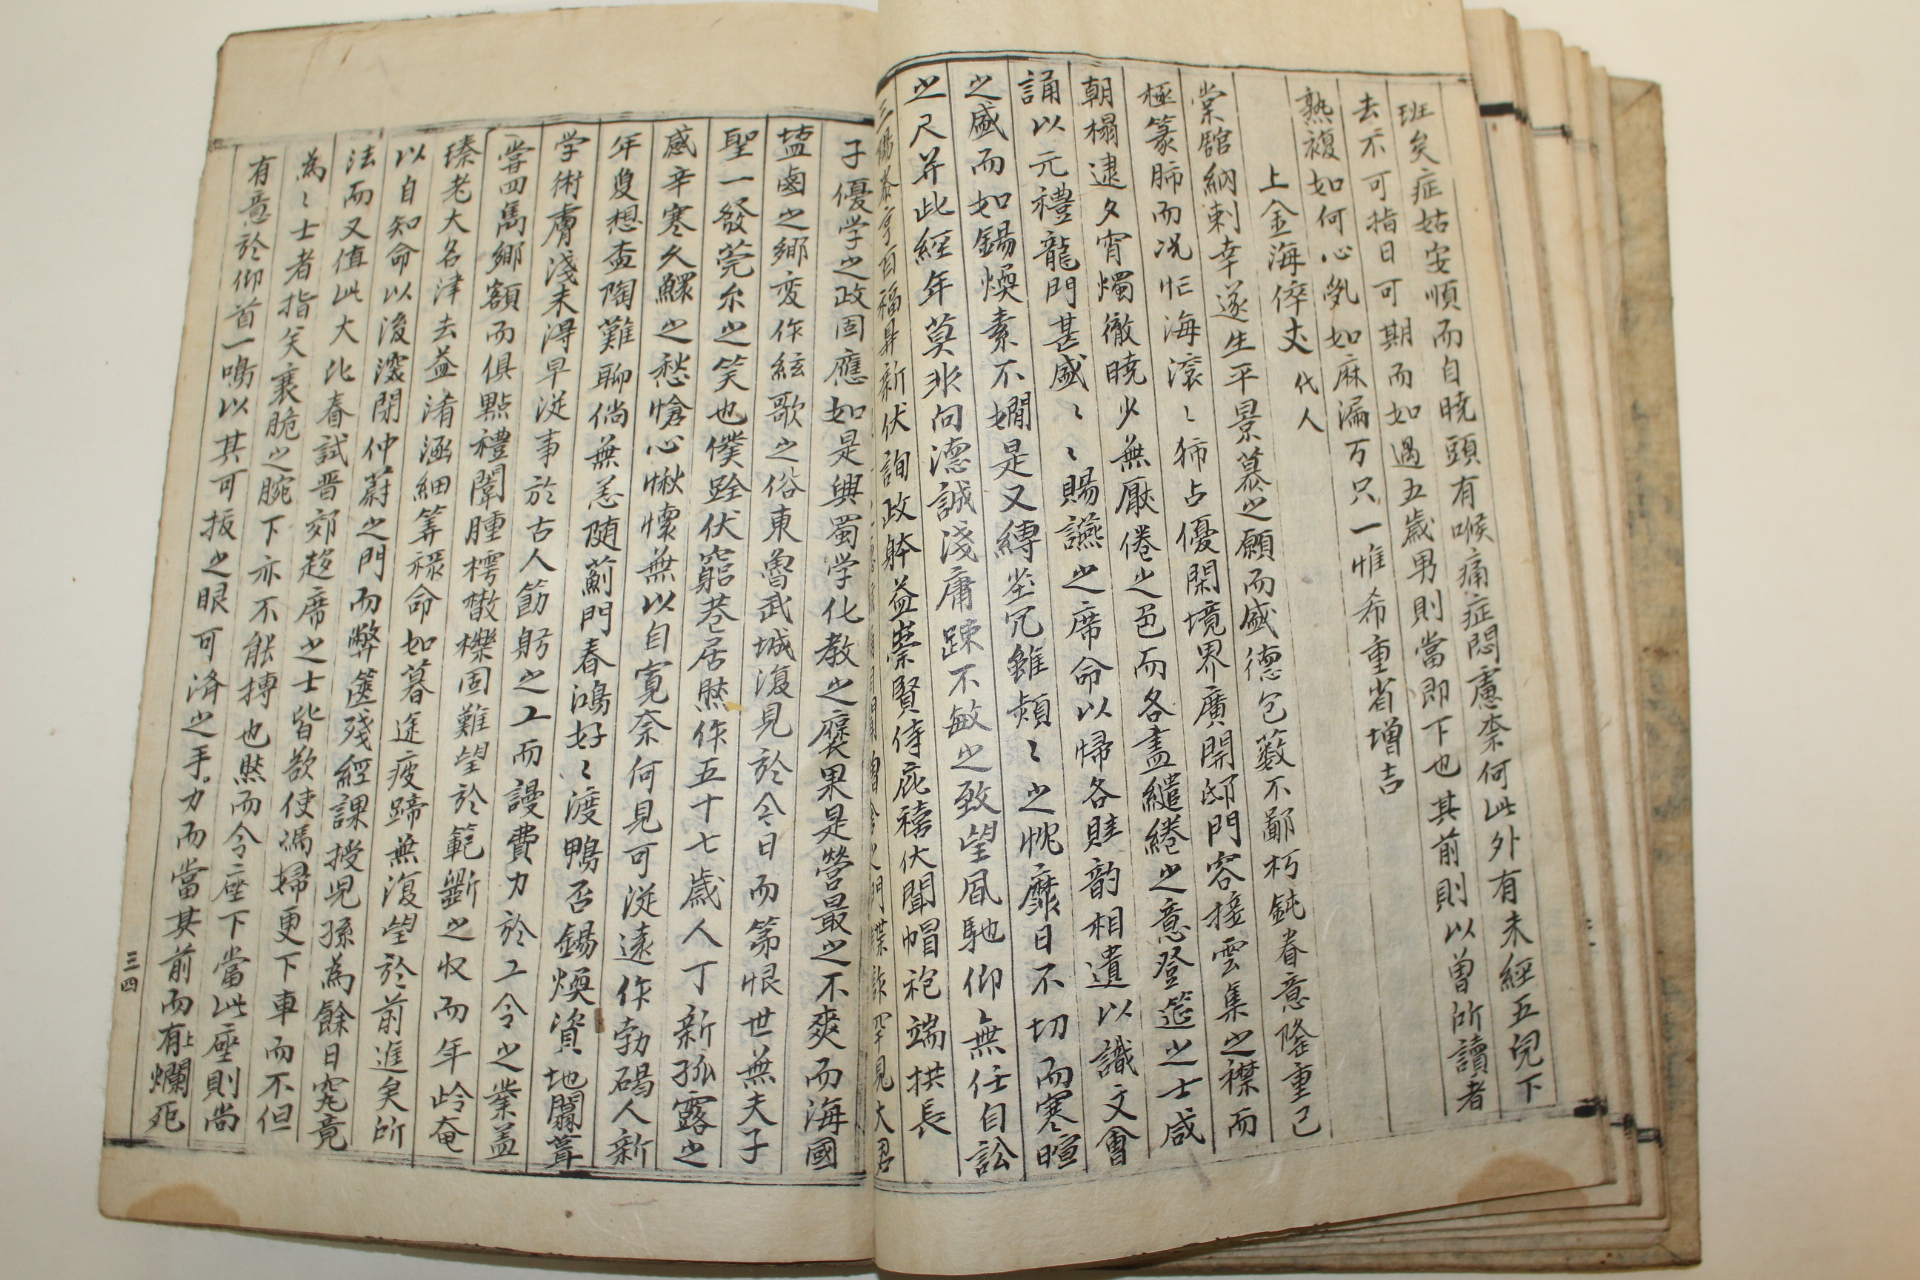 班矣症姑安順而自曉頭有喉痛症悶慮柰何此外有未經五兒下
去不可指日可期而如過五歲男則當即下也其前則以曾所讀者
熟複如何心乳如麻漏万只一惟希重省增吉
上金海倅丈代人
棠舘納刺幸遂生平景慕之願而盛德包藪不鄙朽鈍眷意隆重已
極篆肺而况忙海滾〻狶占優閑境界廣開邸門容接雲集之襟而
朝榻逮夕宵燭徹曉少無厭倦之色而各盡繾綣之意登筵之士咸
誦以元禮龍門甚盛〻〻賜讌之席命以帰各賆韵相遺以識文會
之盛而如錫煥素不嫺是又縛坐冗雖頻〻之忱靡日不切而寒暄
之尺并此經年莫非向德誠淺庸踈不敏之致望風馳仰無任自訟
新伏詢政躰益崇賢侍庇禧伏聞帽袍端拱長
子優学之政固應如是與蜀学化教之褒果是營最之不爽而海國
塩鹵之鄉变作絃歌之俗東魯武城復見於今日而第恨世無夫子
聖一發莞尔之笑也僕跧伏窮巷居然作五十七歲人丁新孤露之
感辛寒久鰥之愁愴心愀懷無以自寬奈何見可従遠作勃碣人新
年更想壺陶難聊倘無恙随薊門春鴻好〻渡鴨否錫煥資地闒茸
学術膚淺未淂早従事於古人飭躬之工而謾費力於工令之業盖
嘗四雋鄉額而俱點禮闈腫樗檄櫟固難望於範斵之収而年岭奄
臻老大名津去益渚涵細筭祿命如暮途疲蹄無復望於前進矣所
以自知命以後深閉仲蔚之門而弊篋殘經課授児孫為餘日究竟
法而又值此大比春試晋郊趍席之士皆欲使馮婦更下車而不但
為〻士者指矣衰脆之腕下亦不能搏也然而今座下當此座則尚
有意於仰首一鳴以其可扳之眼可済之手力而當其前而有上爛死
三四